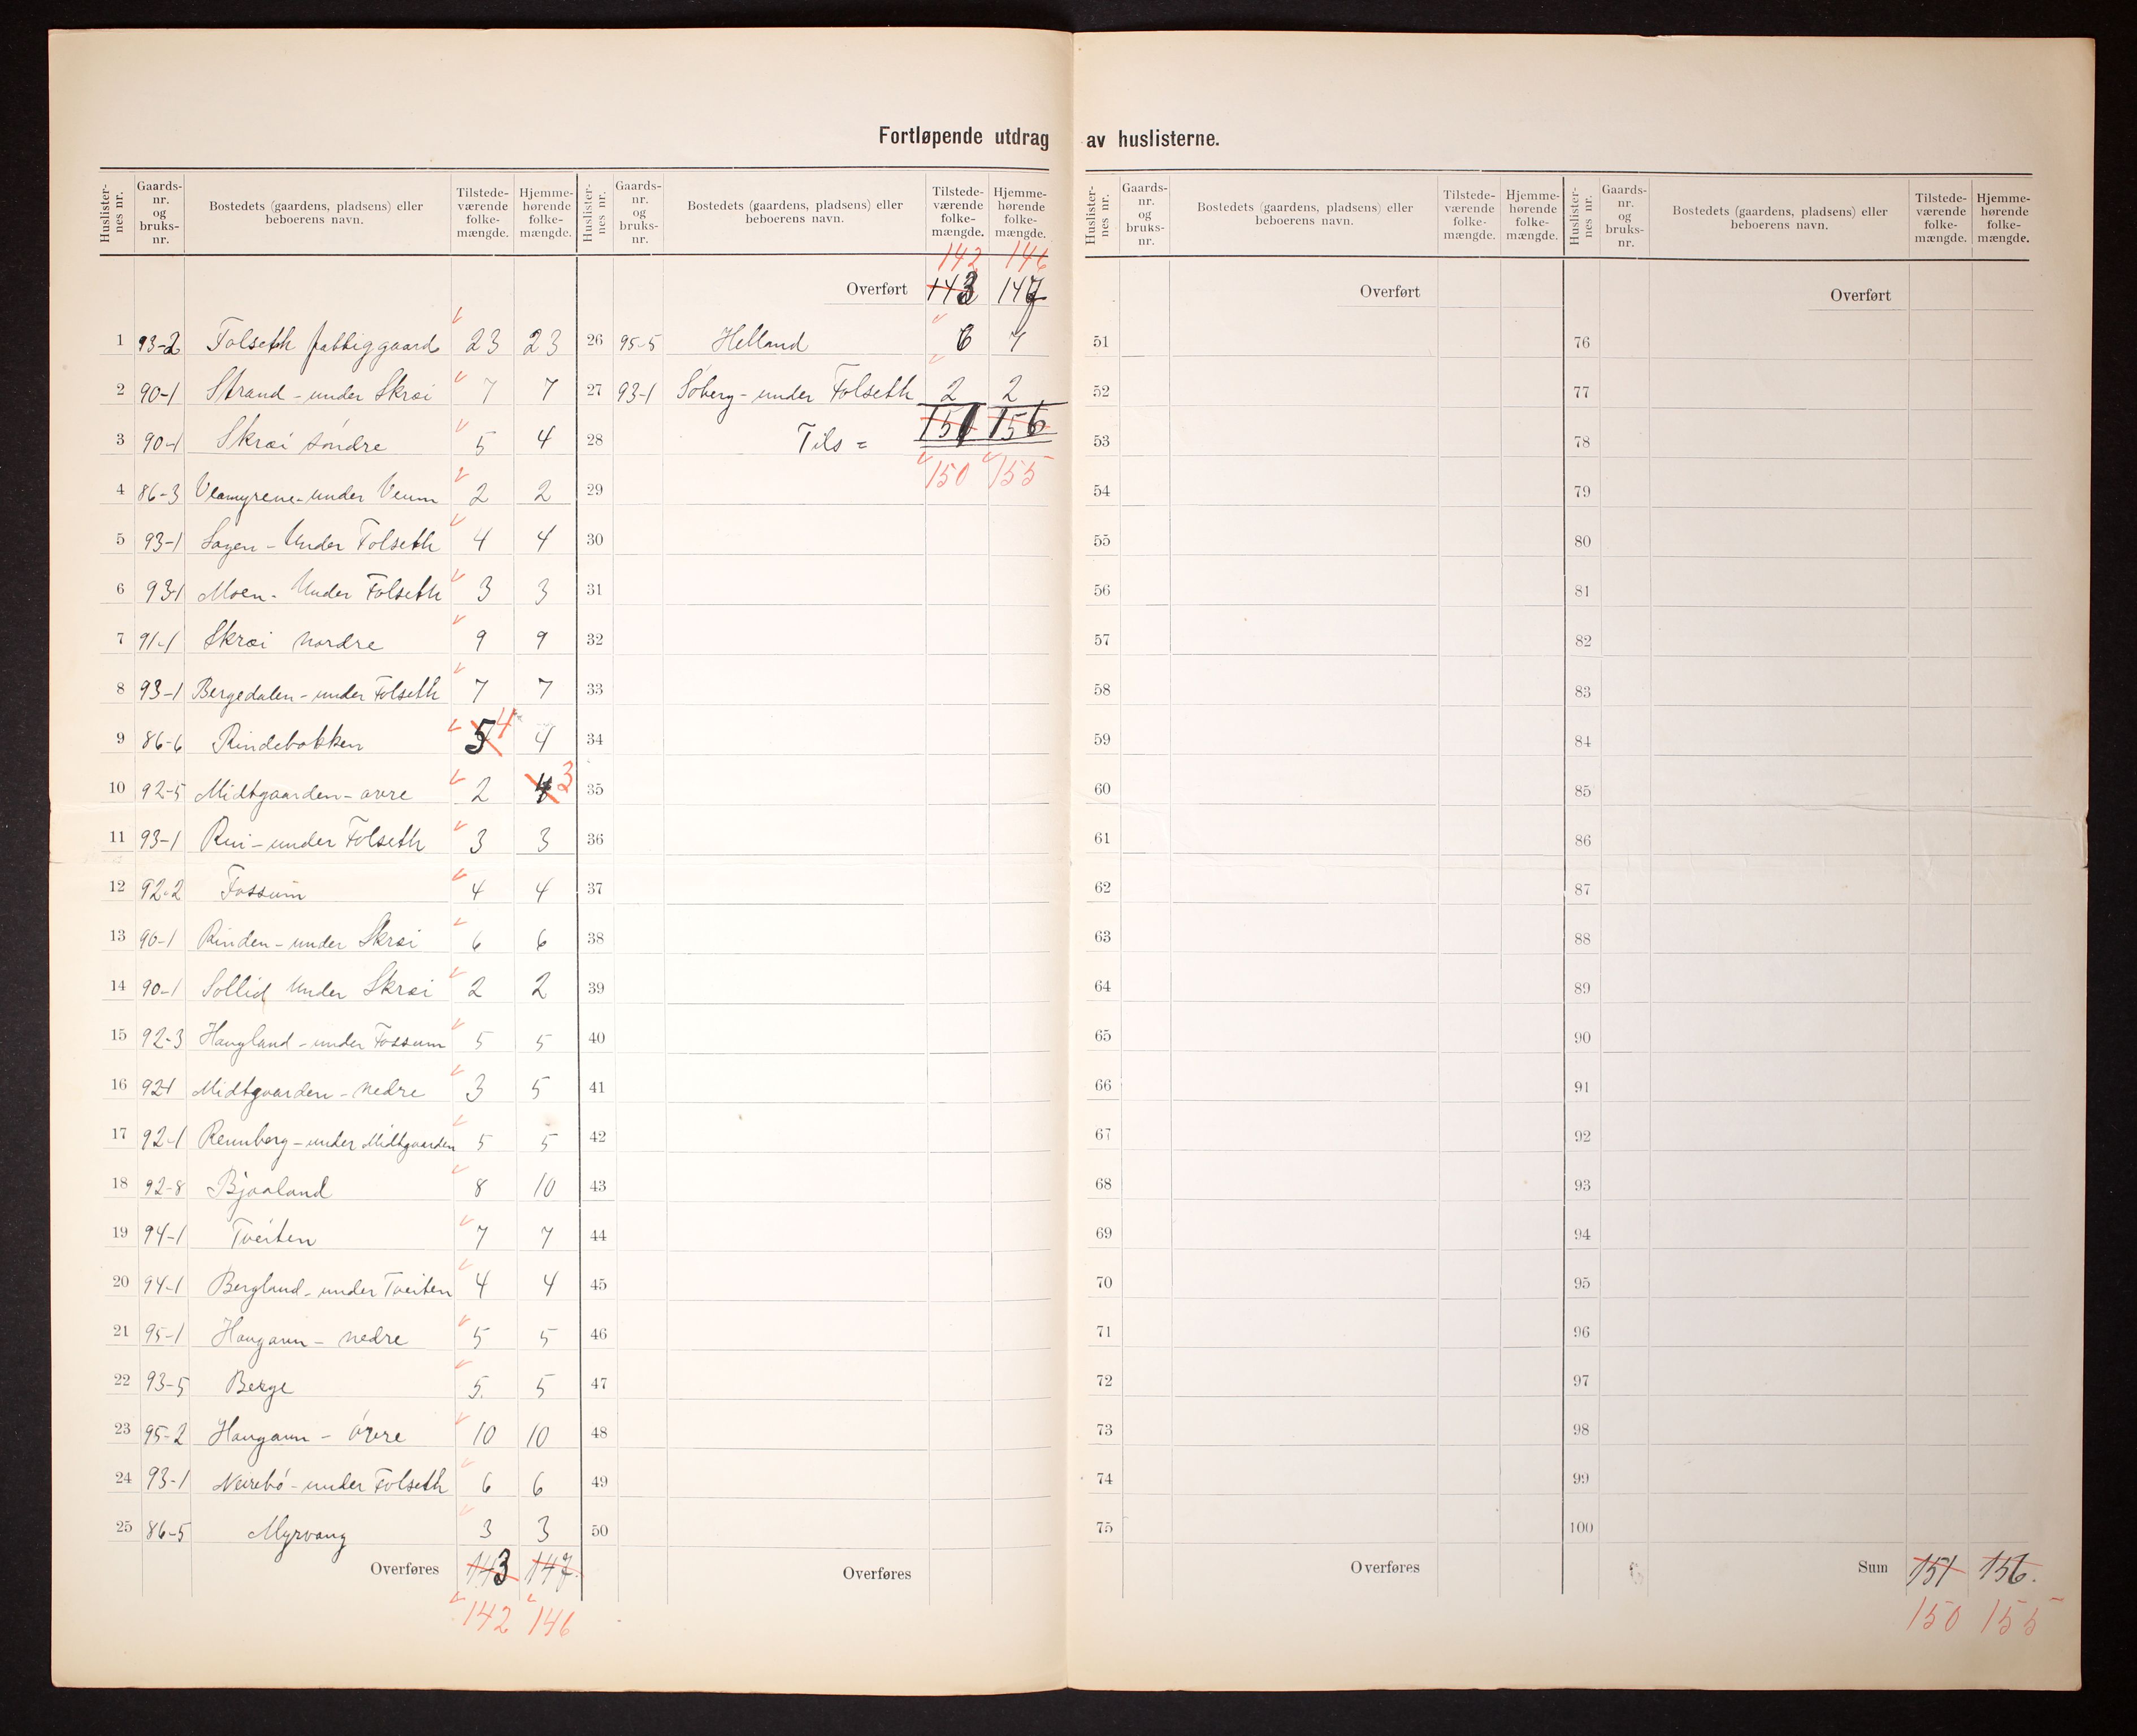 Fortløpende utdrag av huslisterne.
Huslister-nes nr. Gaards-nr. og bruks-nr. Bostedets (gaardens, pladsens) eller beboerens navn. Tilstede-værende folke-mængde. Hjemme-hørende folke-mængde.
1 93-2 Folseth fattiggaard 23 23
2 90-1 Strand - under Skræi 7 7
3 90-1 Skræi søndre 5 4
4 86-3 Veamyrene - under Veum 2 2
5 93-1 Sagen - Under Folseth 4 4
6 93-1 Moen - Under Folseth 3 3
7 91-1 Skræi nordre 9 9
8 93-1 Bergedalen - under Folseth 7 7
9 86-6 Rindebakken 5 4 4
10 92-5 Midtgaarden - øvre 2 4 3
11 93-1 Rui - under Folseth 3 3
12 92-2 Fossum 4 4
13 90-1 Rinden - under Skræi 6 6
14 90-1 Sollid Under Skræi 2 2
15 92-3 Haugland - under Fossum 5 5
16 92-1 Midtgaarden - nedre 3 5
17 92-1 Rennberg - under Midtgaarden 5 5
18 92-8 Bjaaland 8 10
19 94-1 Tveiten 7 7
20 94-1 Bergland - under Tveiten 4 4
21 95-1 Haugann - nedre 5 5
22 93-5 Berge 5. 5
23 95-2 Haugann - øvre 10 10
24 93-1 Neirebø - under Folseth 6 6
25 86-5 Myrvang 3 3
Overføres 143 147.
142 146
Huslister-nes nr. Gaards-nr. og bruks-nr. Bostedets (gaardens, pladsens) eller beboerens navn. Tilstede-værende folke-mængde. Hjemme-hørende folke-mængde.
142 146
Overført 143 147
26 95-5 Helland 6 7
27 93-1 Søberg - under Folseth 2 2
28 Tils = 151 156
29 150 155
30
31
32
33
34
35
36
37
38
39
40
41
42
43
44
45
46
47
48
49
50
Overføres
Huslister-nes nr. Gaards-nr. og bruks-nr. Bostedets (gaardens, pladsens) eller beboerens navn. Tilstede-værende folke-mængde. Hjemme-hørende folke-mængde.
Overført
51
52
53
54
55
56
57
58
59
60
61
62
63
64
65
66
67
68
69
70
71
72
73
74
75
Overføres
Huslister-nes nr. Gaards-nr. og bruks-nr. Bostedets (gaardens, pladsens) eller beboerens navn. Tilstede-værende folke-mængde. Hjemme-hørende folke-mængde.
Overført
76
77
78
79
80
81
82
83
84
85
86
87
88
89
90
91
92
93
94
95
96
97
98
99
100
Sum 151 156.
150 155